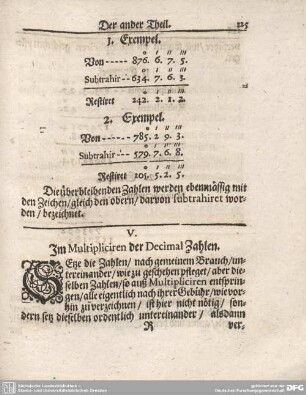 Der ander Theil. 125
1. Exempel.
0 I II III
Von ----- 876. 6. 7. 5.
0 I II III
Subtrahir -- 634. 7. 6. 3.
0 I II III
Restiret 242. 2. 1. 2.
2. Exempel.
0 I II III
Von ----- 785. 2 9. 3.
0 I II III
Subtrahir -- 579. 7. 6. 8.
0 I II III
Restiret 205. 5. 2. 5.
Die überbleibenden Zahlen werden ebenmässig mit
den Zeichen / gleich den obern / darvon subtrahiret wor-
den / bezeichnet.
V.
Im Multipliciren der Decimal Zahlen.
SEtze die Zahlen / nach gemeinem Brauch / un-
tereinander / wie zu geschehen pfleget / aber die-
selben Zahlen / so auß Multipliciren entsprin-
gen / alle eigentlich nach ihrer Gebühr / wie vor-
hin zu verzeichnen / ist hier nicht nötig / son-
dern setz dieselben ordentlich untereinander / alsdann
R ver-